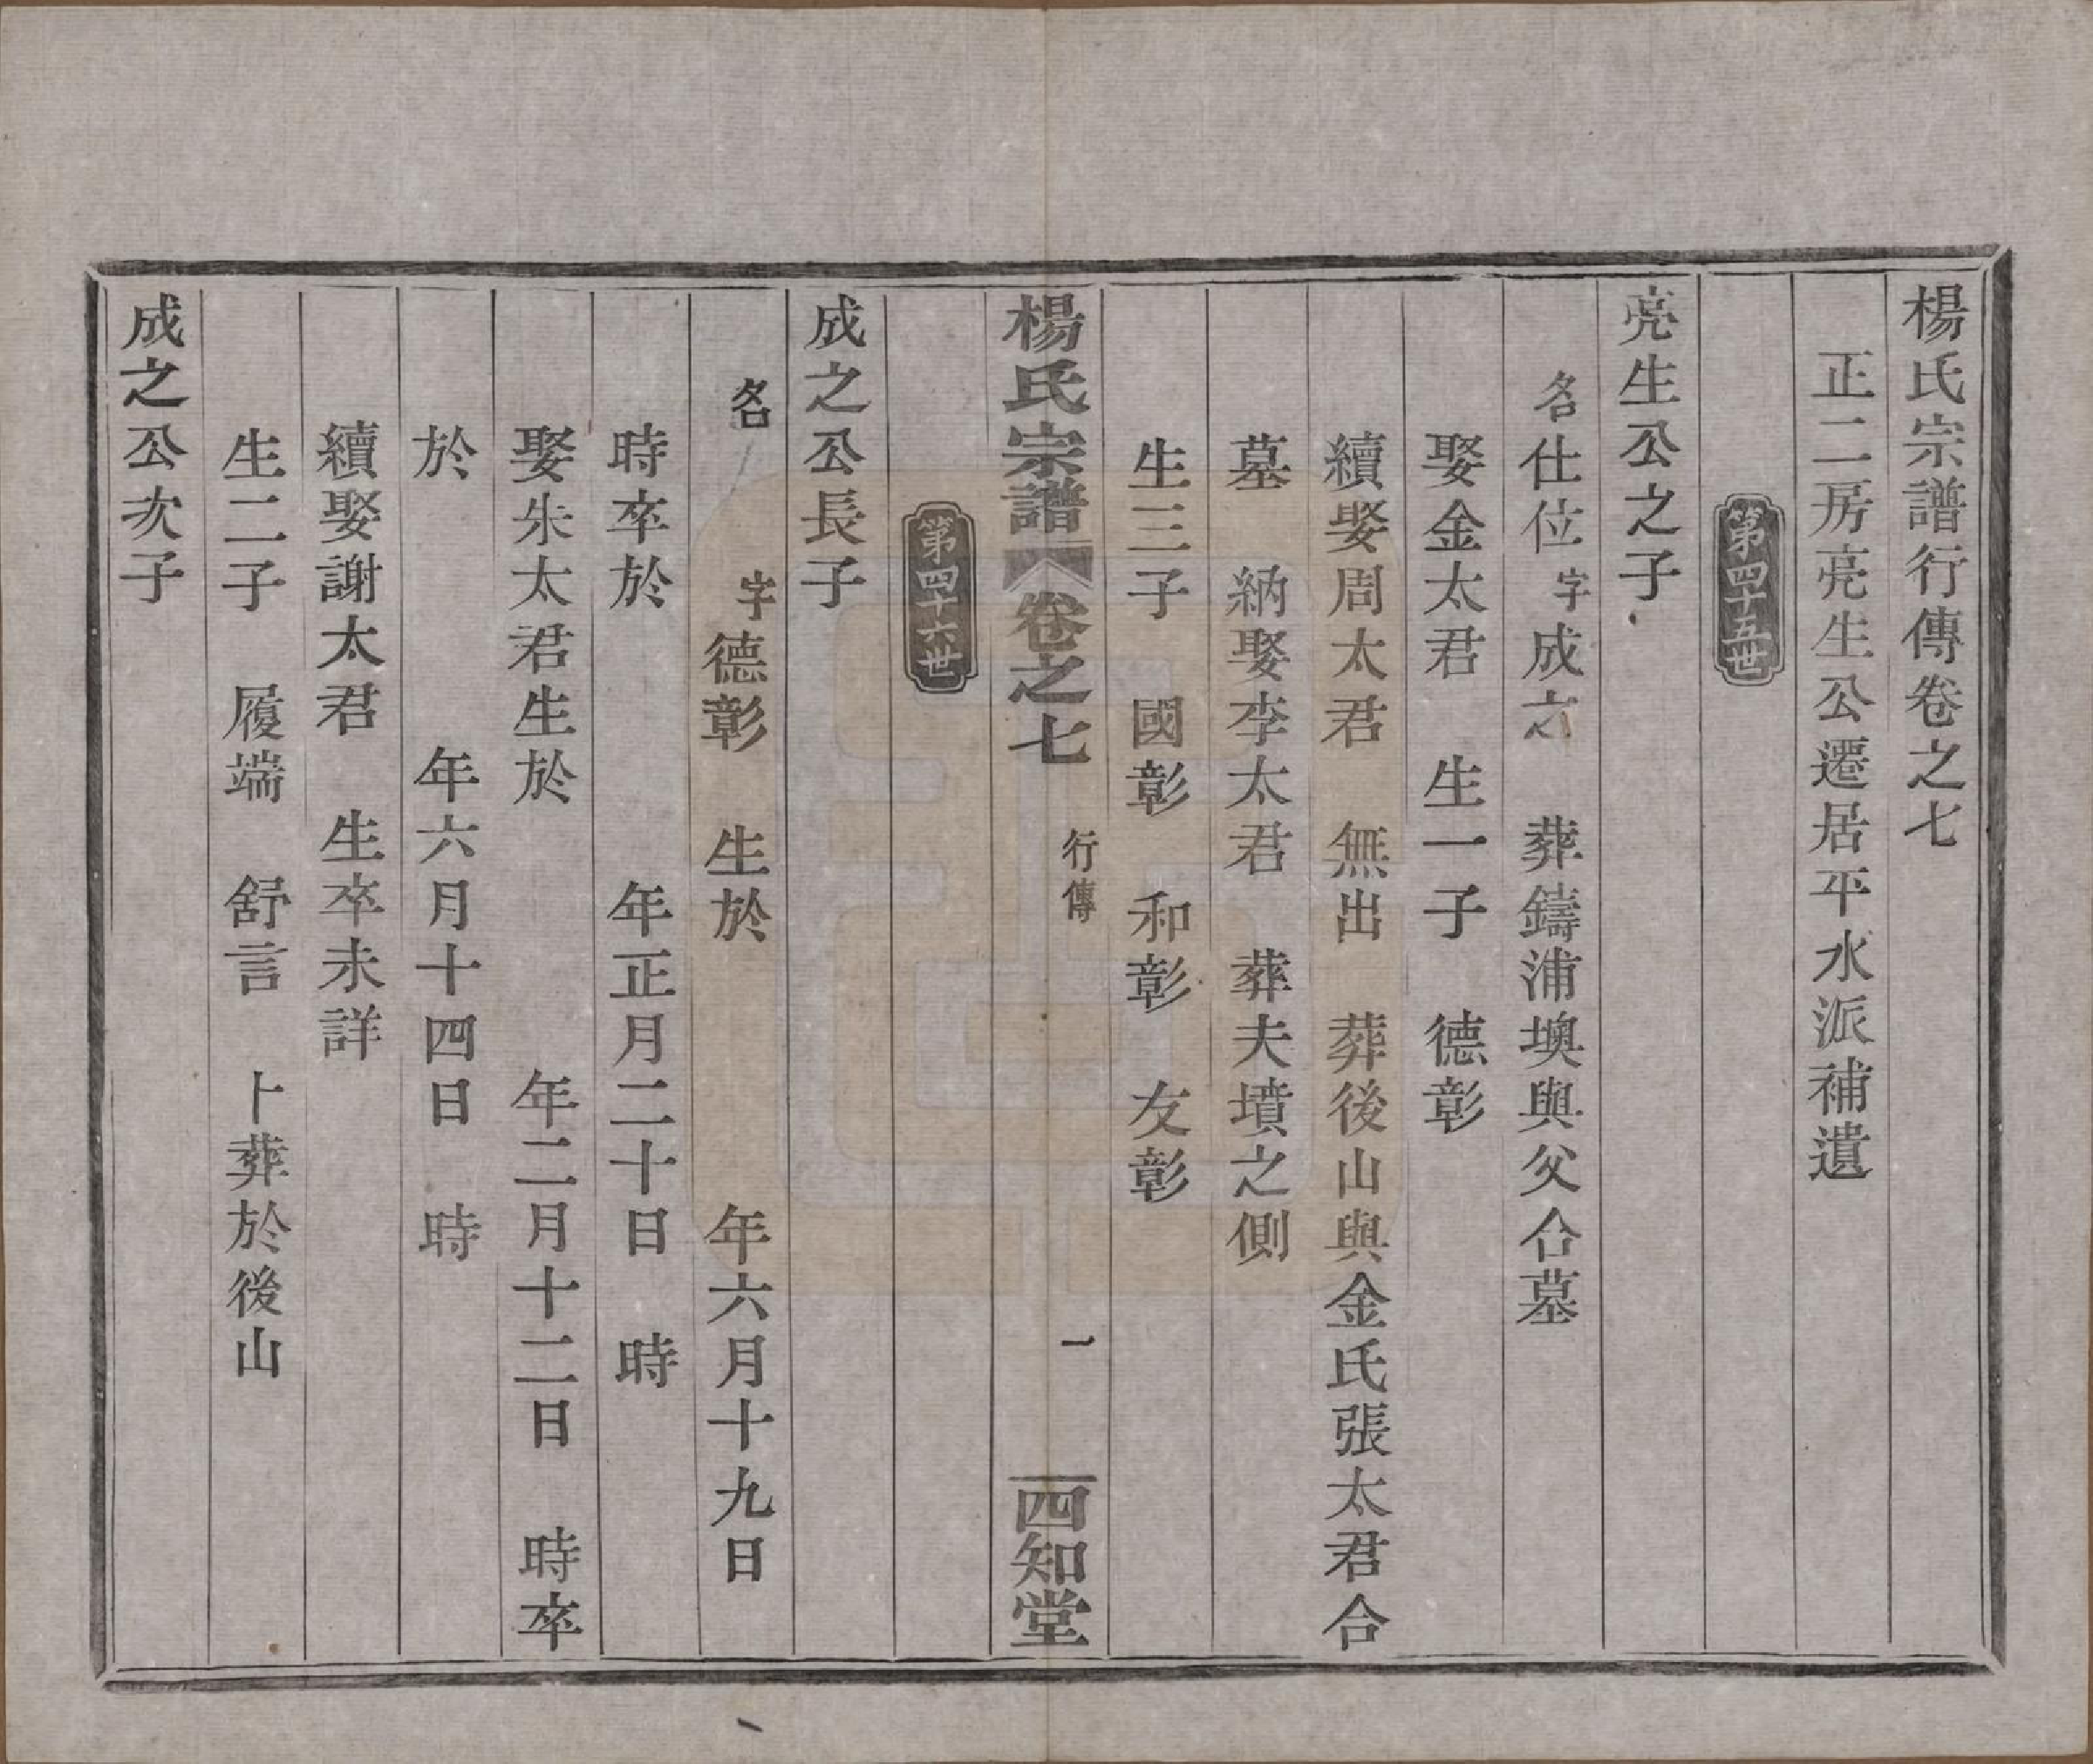 楊氏宗譜行傳卷之七
正二房亮生公遷居平水派補遺
第四十五世
亮生公之子
名仕位字成之　葬鑄浦墺與父合墓
娶金太君　生一子　德彰
續娶周太君　無出　葬後山與金氏張太君合
墓　納娶李太君　葬夫墳之側
生三子　國彰　和彰　友彰
楊氏宗譜　卷之七　行傳　一　四知堂
第四十六世
成之公長子
名　字德彰　生於　年六月十九日
時卒於　年正月二十日　時
娶朱太君生於　年二月十二日　時卒
於　年六月十四日　時
續娶謝太君　生卒未詳
生二子　履端　舒言　卜葬於後山
成之公次子